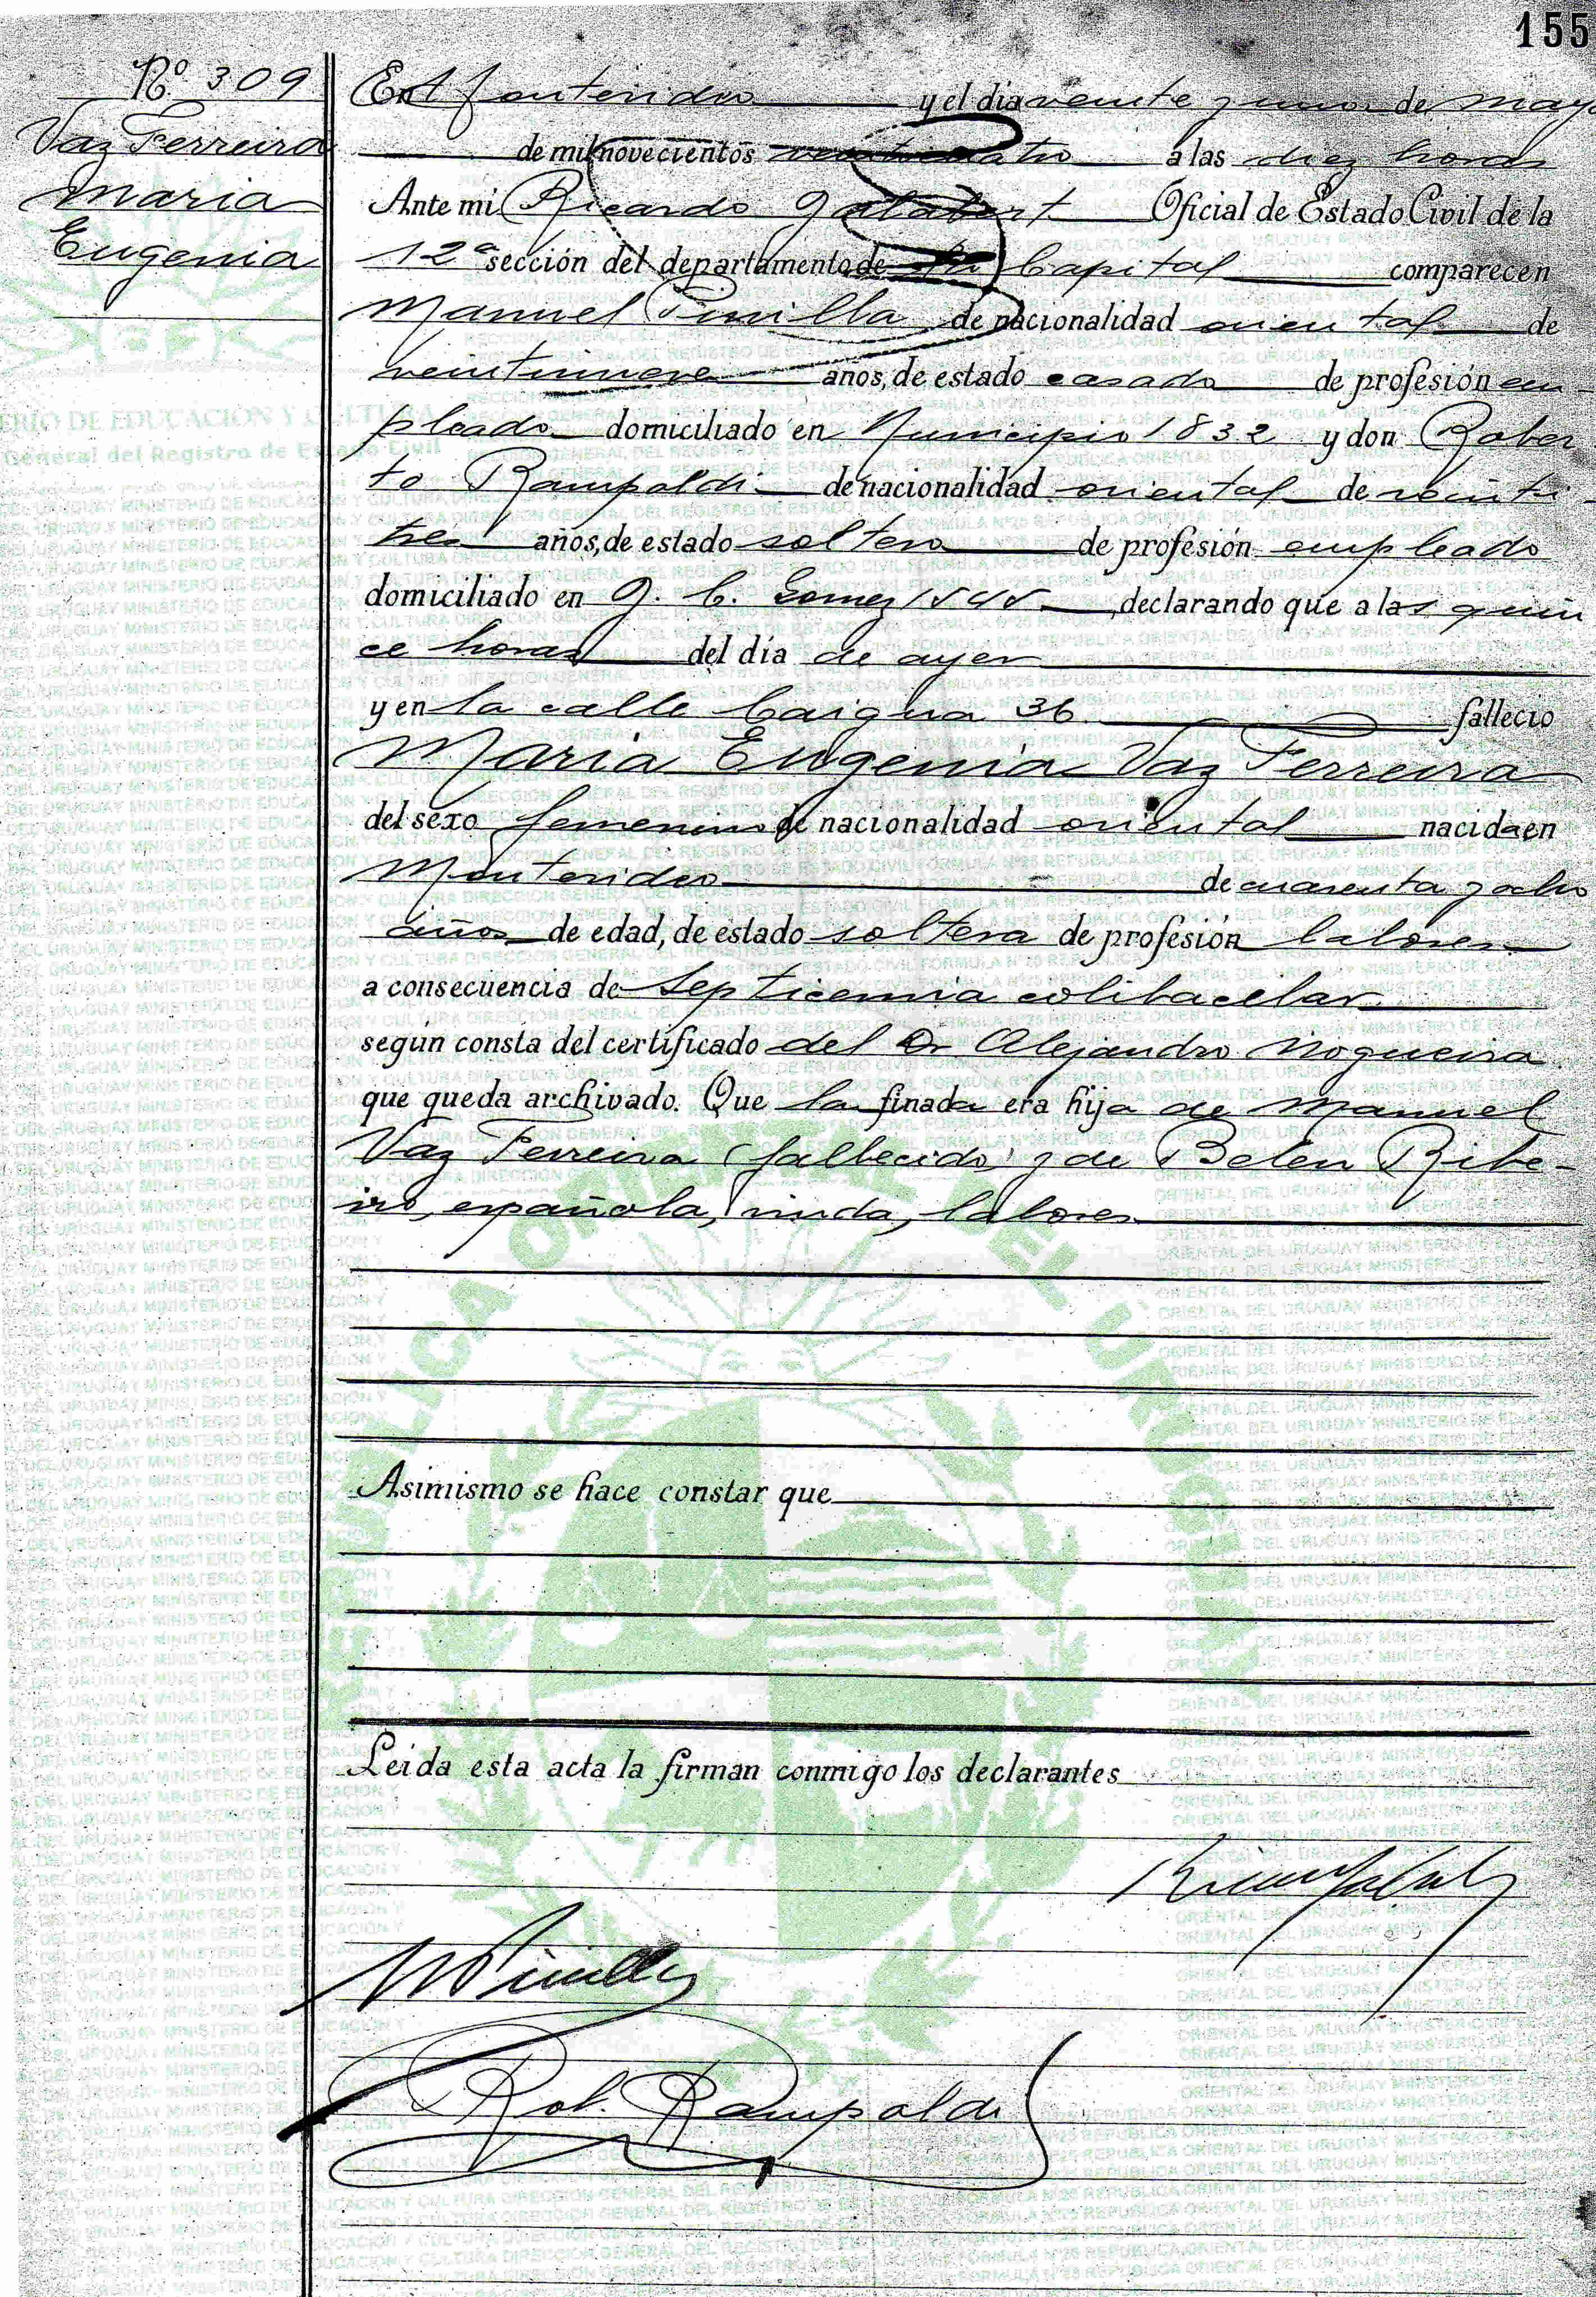 155
Nº 309
Vaz Ferreira
Maria
Eugenia
En Montevideo y el dia veinte y uno de mayo
de mil novecientos veinticuatro a las diez horas
Ante mi Ricardo Galabert Oficial de Estado Civil de la
12ª sección del departamento de la Capital comparecen
Manuel Pinilla de nacionalidad oriental de
veintinueve años, de estado casado de profesión em-
pleado domiciliado en Municipio 1832 y don Rober
to Rampoldi de nacionalidad oriental de veinti
tres años, de estado soltero de profesión empleado
domiciliado en J. C. Gomez declarando que a las quin
ce horas del dia de ayer
y en la calle Caigua 36 fallecio
Maria Eugenia Vaz Ferreira
del sexo femenino de nacionalidad oriental nacida en
Montevideo de cuarenta y ocho
años de edad, de estado soltera de profesión labores
a consecuencia de Septicemia colibacelar
según consta del certificado del Dr Alejandro Nogueira
que queda archivado. Que la finada era hija de Manuel
Vaz Ferreira (fallecido) y de Belen Ribe-
iro, española, viuda, labores
Asimismo se hace constar que
Leida esta acta la firman conmigo los declarantes
MPinilla
Rob. Rampoldi
REPUBLICA ORIENTAL DEL URUGUAY
MINISTERIO DE EDUCACION Y CULTURA
General del Registro de Estado Civil